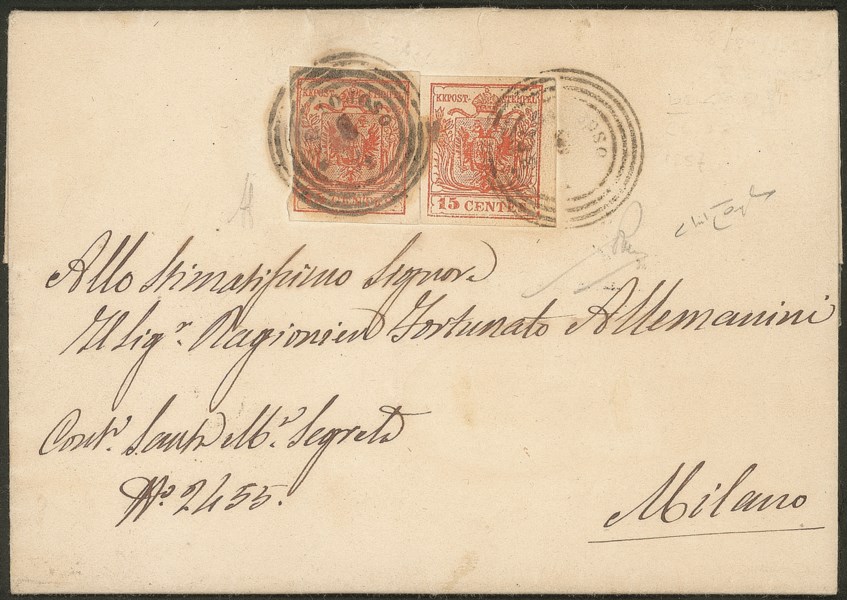 KKPOST-STEMPEL KKPOST-STEMPEL
15 CENTES
Allo Stimatissimo Signore
Il Sigr. Ragionier Fortunato Allemanini
Conta. Santa Ma. Segreta
No. 2455.
Milano